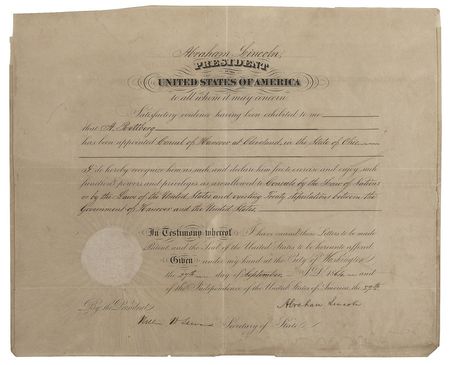 Abraham Lincoln,
PRESIDENT
OF THE
UNITED STATES OF AMERICA
to all whom it may concern
Satisfactory evidence having been exhibited to me
that A.
has been appointed Consul of Hanover at Cleveland, in the State of Ohio
I do hereby recognize him as such, and declare him free to exercise and enjoy such
functions, powers and privileges as are allowed to Consuls by the Law of Nations
or by the Laws of the United States and existing Treaty stipulations between the
Government of Hanover and the United States.
In Testimony whereof I have caused these Letters to be made
Patent, and the Seal of the United States to be hereunto affixed
Given under my hand at the City of Washington
the day of September A.D. 1864 and
of the Independence of the United States of America, the
By the President
Abraham Lincoln
William H Seward Secretary of State